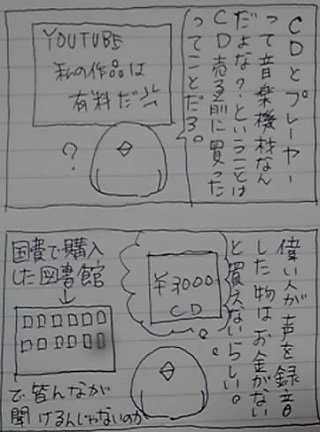 CDとプレーヤー
って音楽機材なん
だよな?ということは
CD売る前に買った
ってことだろ。
YOUTUBE
私の作品は
有料だ
?
偉い人が声を録音
した物はお金がない
と買えないらしい。
¥3000
CD
国費で購入
した図書館
で皆んなが
聞けるんじゃないのか